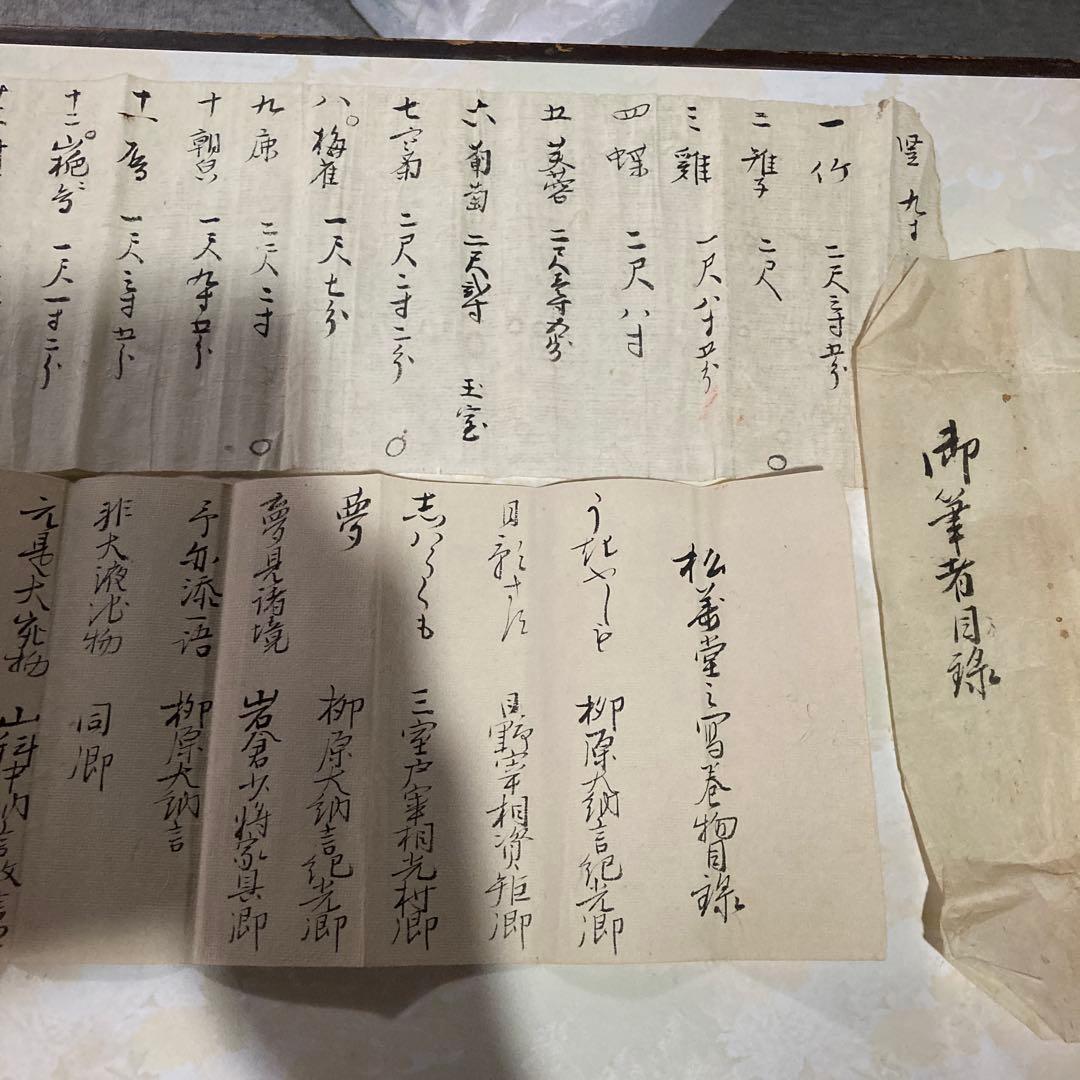 竪 九寸
一 竹 二尺三寸五分
二 雉子 二尺
三 雞 一尺八寸五分
四 蝶 二尺八寸
五 芙蓉 二尺
六 葡萄 二尺 玉室
七 菊 二尺二寸二分
八 梅雀 一尺七分
九 二尺二寸
十 朝皃 一尺九寸五分
十一 一尺三寸五分
十二 一尺一寸二分
御筆者目録
松華堂之写巻物目録
柳原大納言紀光卿
日野宰相資矩卿
志はらくも 三室戸宰相光村卿
夢 柳原大納言紀光卿
夢見諸境 岩倉少将家具卿
予亦添一語 柳原大納言
非大液池物 同卿
元是大 山科中納言